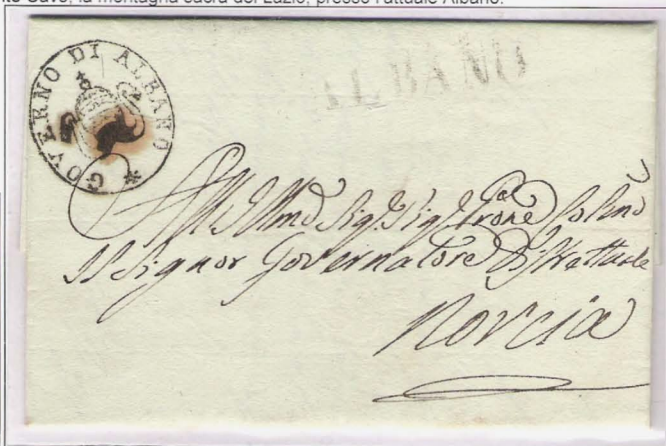 Cavo, la montagna sacra del Lazio, presso l'attuale Albano.
GOVERNO DI ALBANO
ALBANO
All Illmo Sig. Sig. Prone
Il Signor Governatore Distrettuale
Norcia